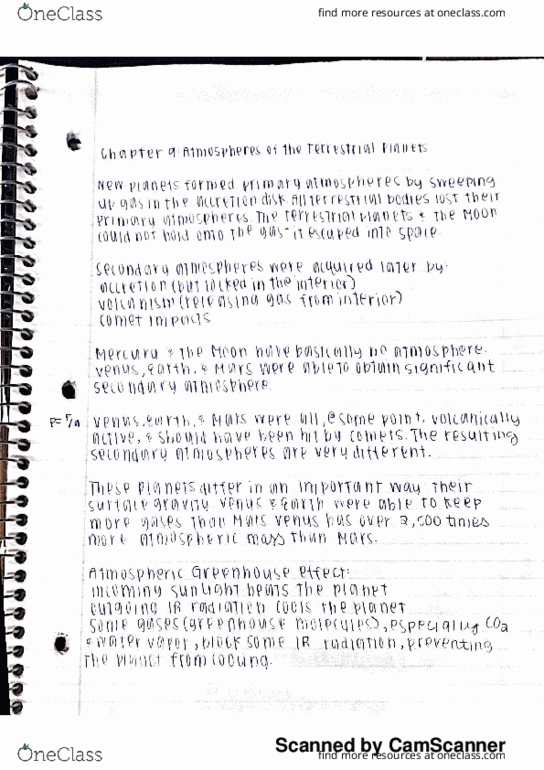 OneClass
find more resources at oneclass.com
Chapter 9: Atmospheres of the Terrestrial Planets
New planets formed primary atmospheres by sweeping
up gas in the accretion disk. All terrestrial bodies lost their
primary atmospheres. The terrestrial planets & the Moon
could not hold onto the gas - it escaped into space.
Secondary atmospheres were acquired later by:
accretion (but locked in the interior)
volcanism (releasing gas from interior)
comet impacts
Mercury & the Moon have basically no atmosphere.
Venus, Earth, & Mars were able to obtain significant
secondary atmosphere.
Venus, Earth, & Mars were all, @ some point, volcanically
active, & should have been hit by comets. The resulting
secondary atmospheres are very different.
These planets differ in an important way: their
surface gravity. Venus & Earth were able to keep
more gases than Mars. Venus has over 2,500 times
more atmospheric mass than Mars.
Atmospheric Greenhouse effect:
incoming sunlight heats the planet
outgoing IR radiation cools the planet
Some gases (greenhouse molecules), especially CO2
& water vapor, block some IR radiation, preventing
the planet from cooling.
Scanned by CamScanner
OneClass
find more resources at oneclass.com